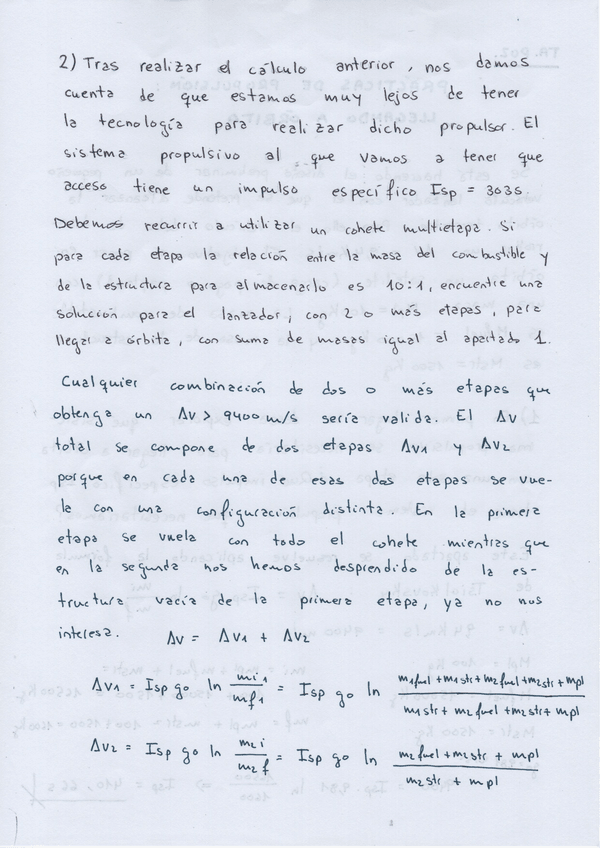 2) Tras realizar el cálculo anterior, nos damos
cuenta de que estamos muy lejos de tener
la tecnología para realizar dicho propulsor. El
sistema propulsivo al que vamos a tener que
acceso tiene un impulso específico Isp = 303s.
Debemos recurrir a utilizar un cohete multietapa. Si
para cada etapa la relación entre la masa del combustible y
de la estructura para almacenarlo es 10:1, encuentre una
solución para el lanzador, con 2 o más etapas, para
llegar a órbita, con suma de masas igual al apartado 1.
Cualquier combinación de dos o más etapas que
obtenga un ΔV > 9400 m/s sería valida. El ΔV
total se compone de dos etapas ΔV1 y ΔV2
porque en cada una de esas dos etapas se vue-
la con una configuración distinta. En la primera
etapa se vuela con todo el cohete mientras que
en la segunda nos hemos desprendido de la es-
tructura vacía de la primera etapa, ya no nos
interesa. ΔV = ΔV1 + ΔV2
ΔV1 = Isp go ln mi1/mf1 = Isp go ln m1fuel + m1str + m2fuel + m2str + mpl / m1str + m2fuel + m2str + mpl
ΔV2 = Isp go ln m2i/m2f = Isp go ln m2fuel + m2str + mpl / m2str + mpl